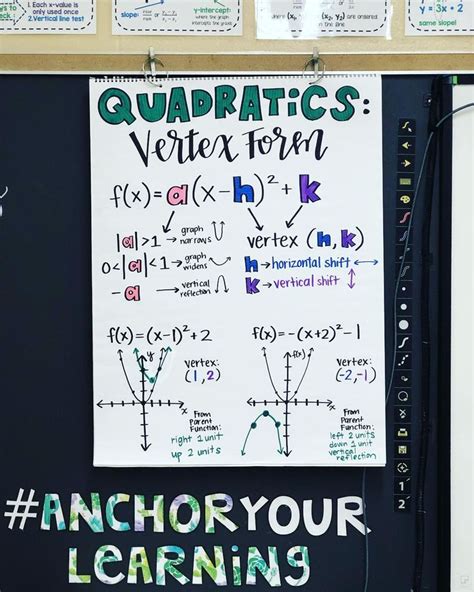 Each x-value is
only used once
2. Vertical line test
y-intercept
where the graph
slope
are ordered
y = 3x + 2
same slope!
QUADRATICS:
Vertex Form
f(x)=a(x-h)²+k
|a|>1 → graph narrows
0<|a|<1 → graph widens
-a → vertical reflection
vertex (h,k)
h → horizontal shift ↔
k → vertical shift ↕
f(x)=(x-1)²+2
y
vertex:
(1,2)
x
From
Parent
Function:
right 1 unit
up 2 units
f(x)=-(x+2)²-1
f(x)
vertex:
(-2,-1)
x
From
Parent
Function:
left 2 units
down 1 unit
vertical
reflection
1
2
#ANCHORYOUR
LEARNING